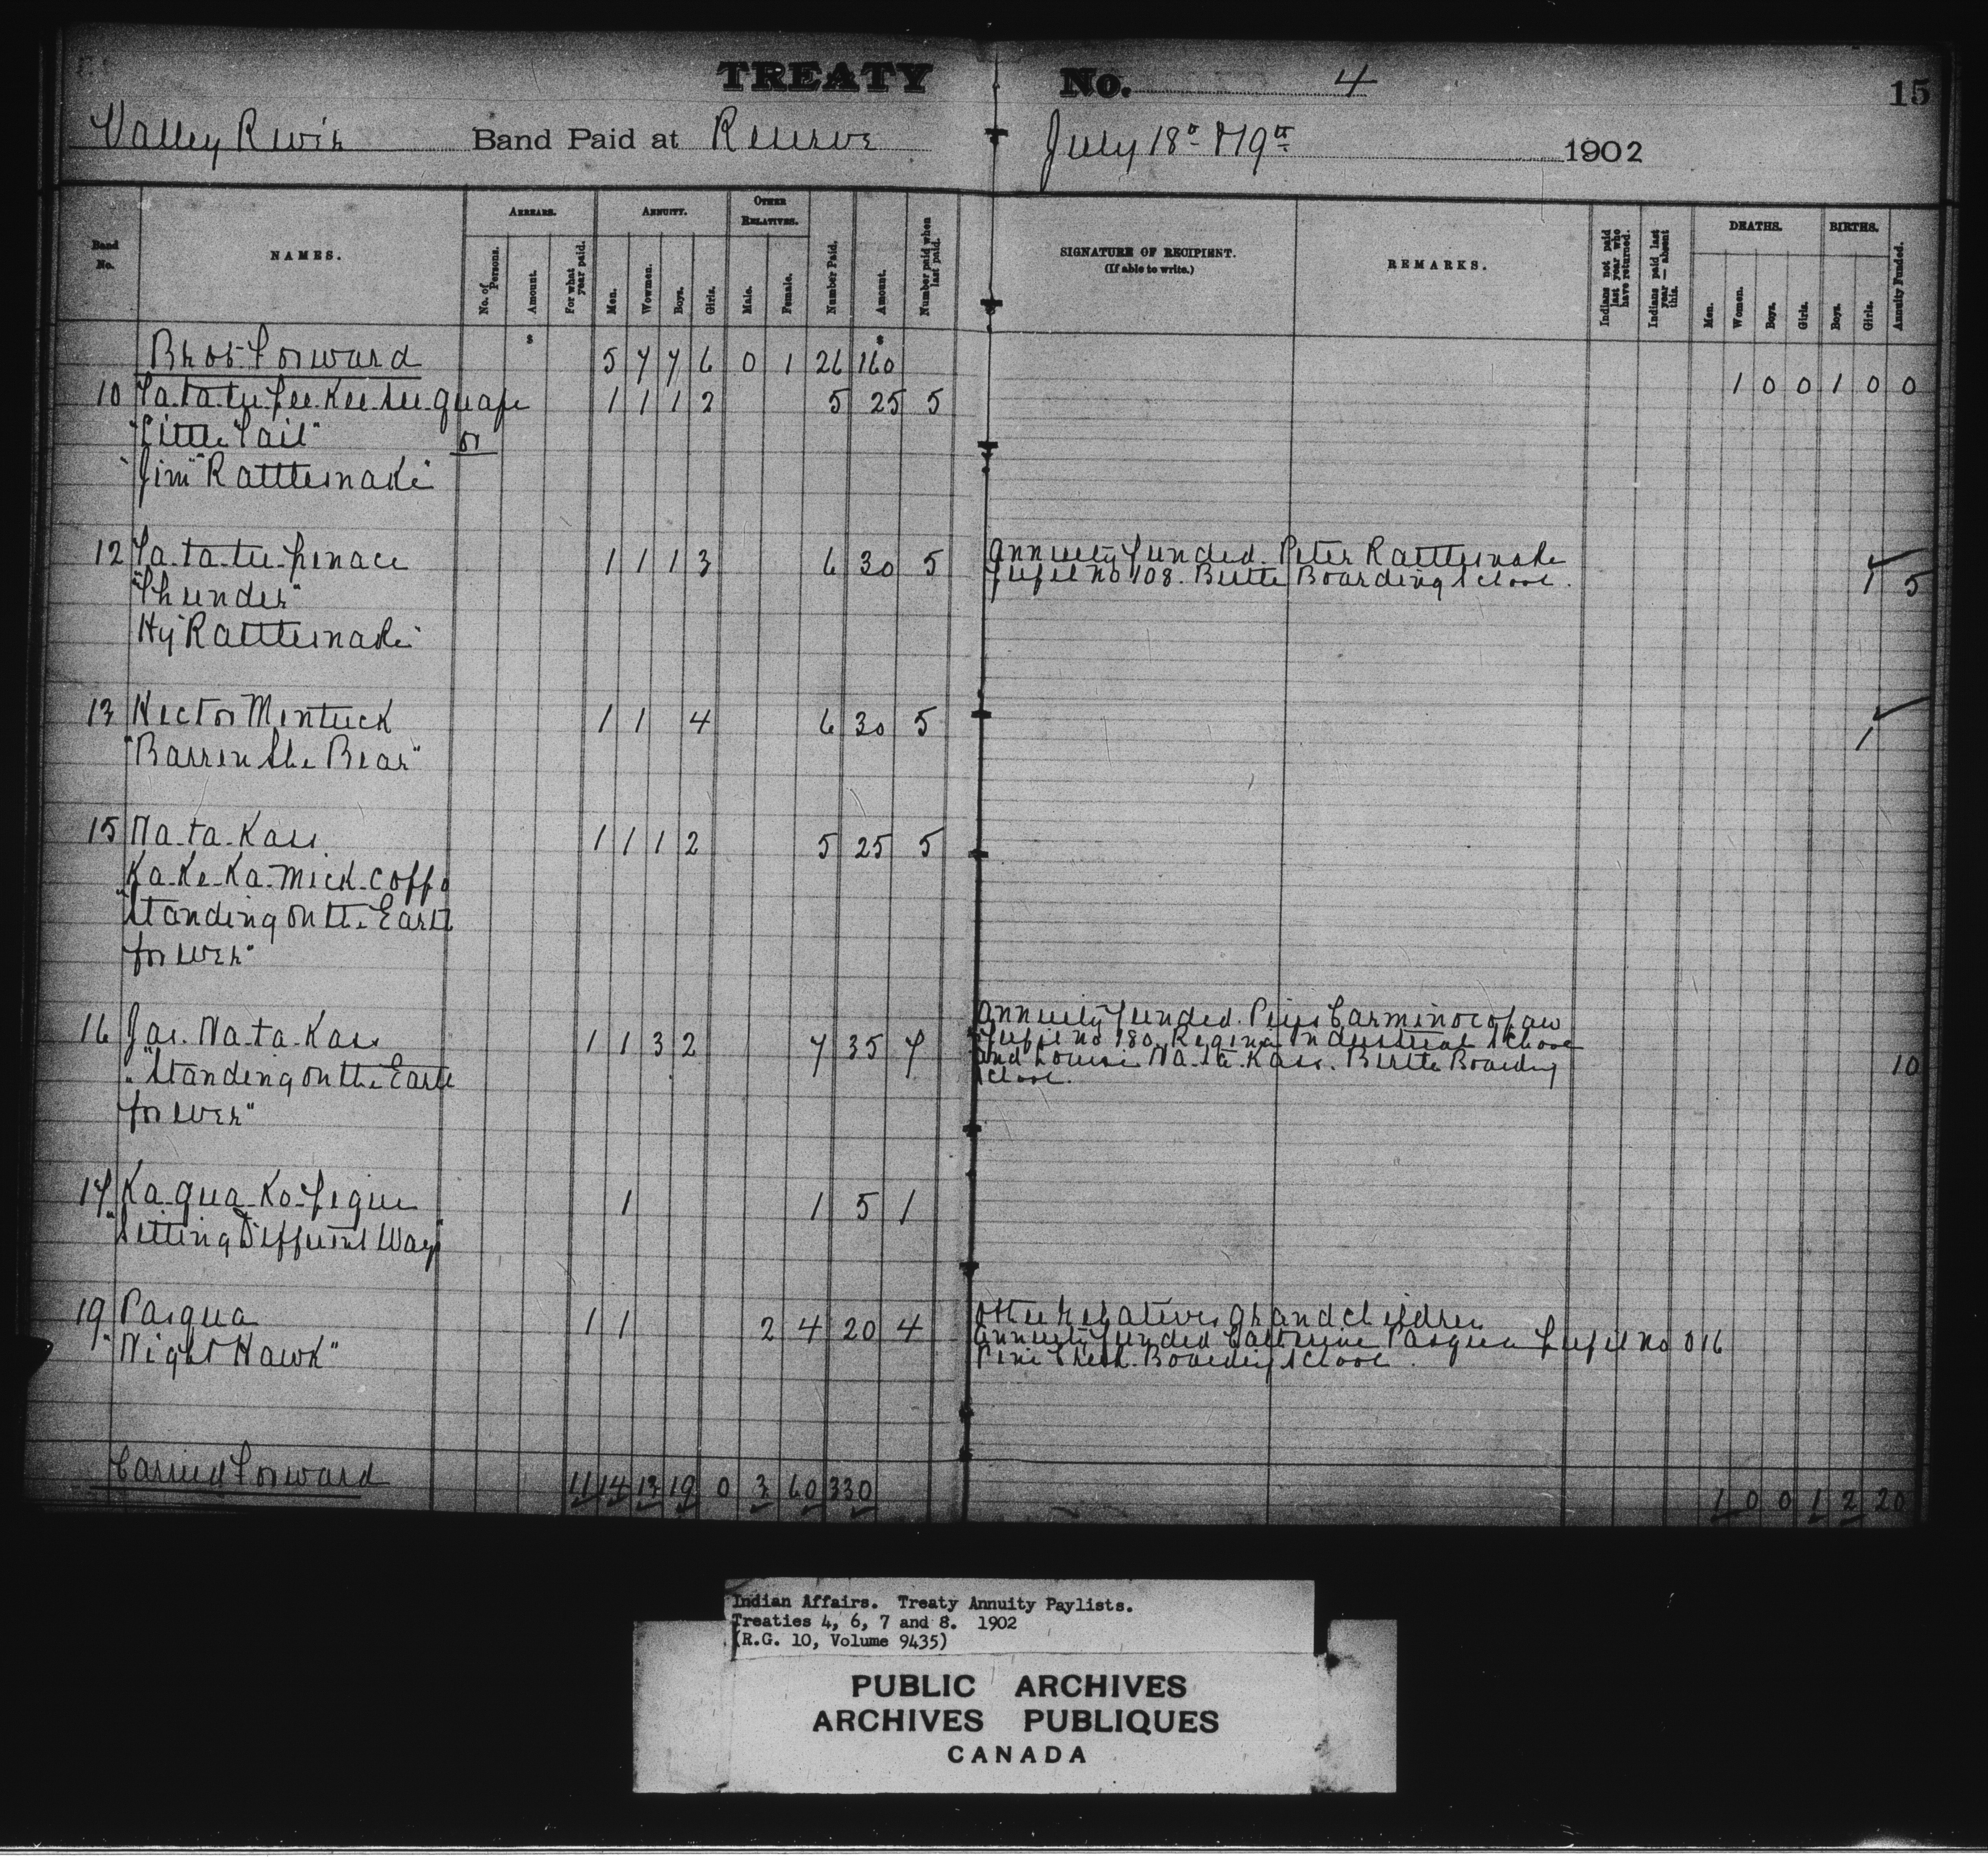 TREATY No. 4 15
Valley River Band Paid at Reserve July 18th & 19th 1902
Band No. NAMES. ARREARS. ANNUITY. OTHER RELATIVES. Number Paid. Amount. Number paid when last paid. SIGNATURE OF RECIPIENT. (If able to write.) REMARKS. Indians not paid last year who have returned. Indians paid last year — absent this. DEATHS. BIRTHS. Annuity Funded.
No. of Persons. Amount. For what year paid. Men. Wowmen. Boys. Girls. Male. Female. Men. Women. Boys. Girls. Boys. Girls.
$ $
Brot Forward 5 7 7 6 0 1 26 160
1 0 0 1 0 0
10 Ta-ta-tu-pee-kee-see-quape 1 1 1 2 5 25 5
"Little Tail" or
"Jim" Rattlesnake
12 Ta-ta-tu-penace 1 1 1 3 6 30 5 Annuity funded. Peter Rattlesnake
pupil no 108. Birtle Boarding School. 1 5
"Thunder"
Hy Rattlesnake
13 Hector Mentuck 1 1 4 6 30 5 1
"Barren She Bear"
15 Na-ta-Kass 1 1 1 2 5 25 5
Ka-Ke-Ka-mick-coppo
"Standing on the Earth
forever"
16 Jas. Na-ta-Kass 1 1 3 2 7 35 7 Annuity funded.
pupil no 180. Regina Industrial School
and Louise Na-ta-Kass. Birtle Boarding
School. 10
"Standing on the Earth
forever"
17 Ka-qua-Ko-pique 1 1 5 1
"Sitting Different Ways"
19 Pasqua 1 1 2 4 20 4 Other relatives grandchildren
Annuity funded Catherine Pasqua pupil no 016
Pine Creek Boarding School.
"Night Hawk"
Carried Forward 11 14 13 19 0 3 60 330 1 0 0 1 2 20
Indian Affairs. Treaty Annuity Paylists.
Treaties 4, 6, 7 and 8. 1902
(R.G. 10, Volume 9435)
PUBLIC ARCHIVES
ARCHIVES PUBLIQUES
CANADA